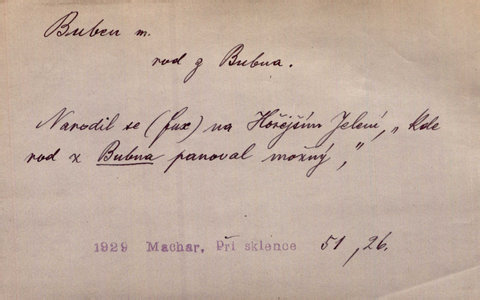 Buben m.
rod z Bubna.
Narodil se (fux) na Hořejším Jelení, „kde
rod z Bubna panoval možný,"
1929 Machar, Při sklence 51, 26.